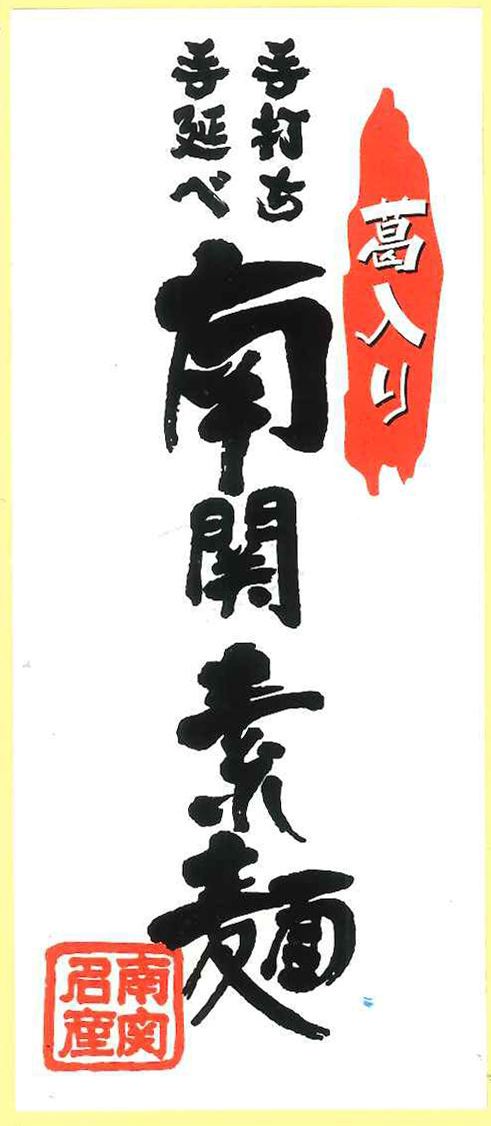 葛入り
手打ち
手延べ
南関素麺
南関
名産